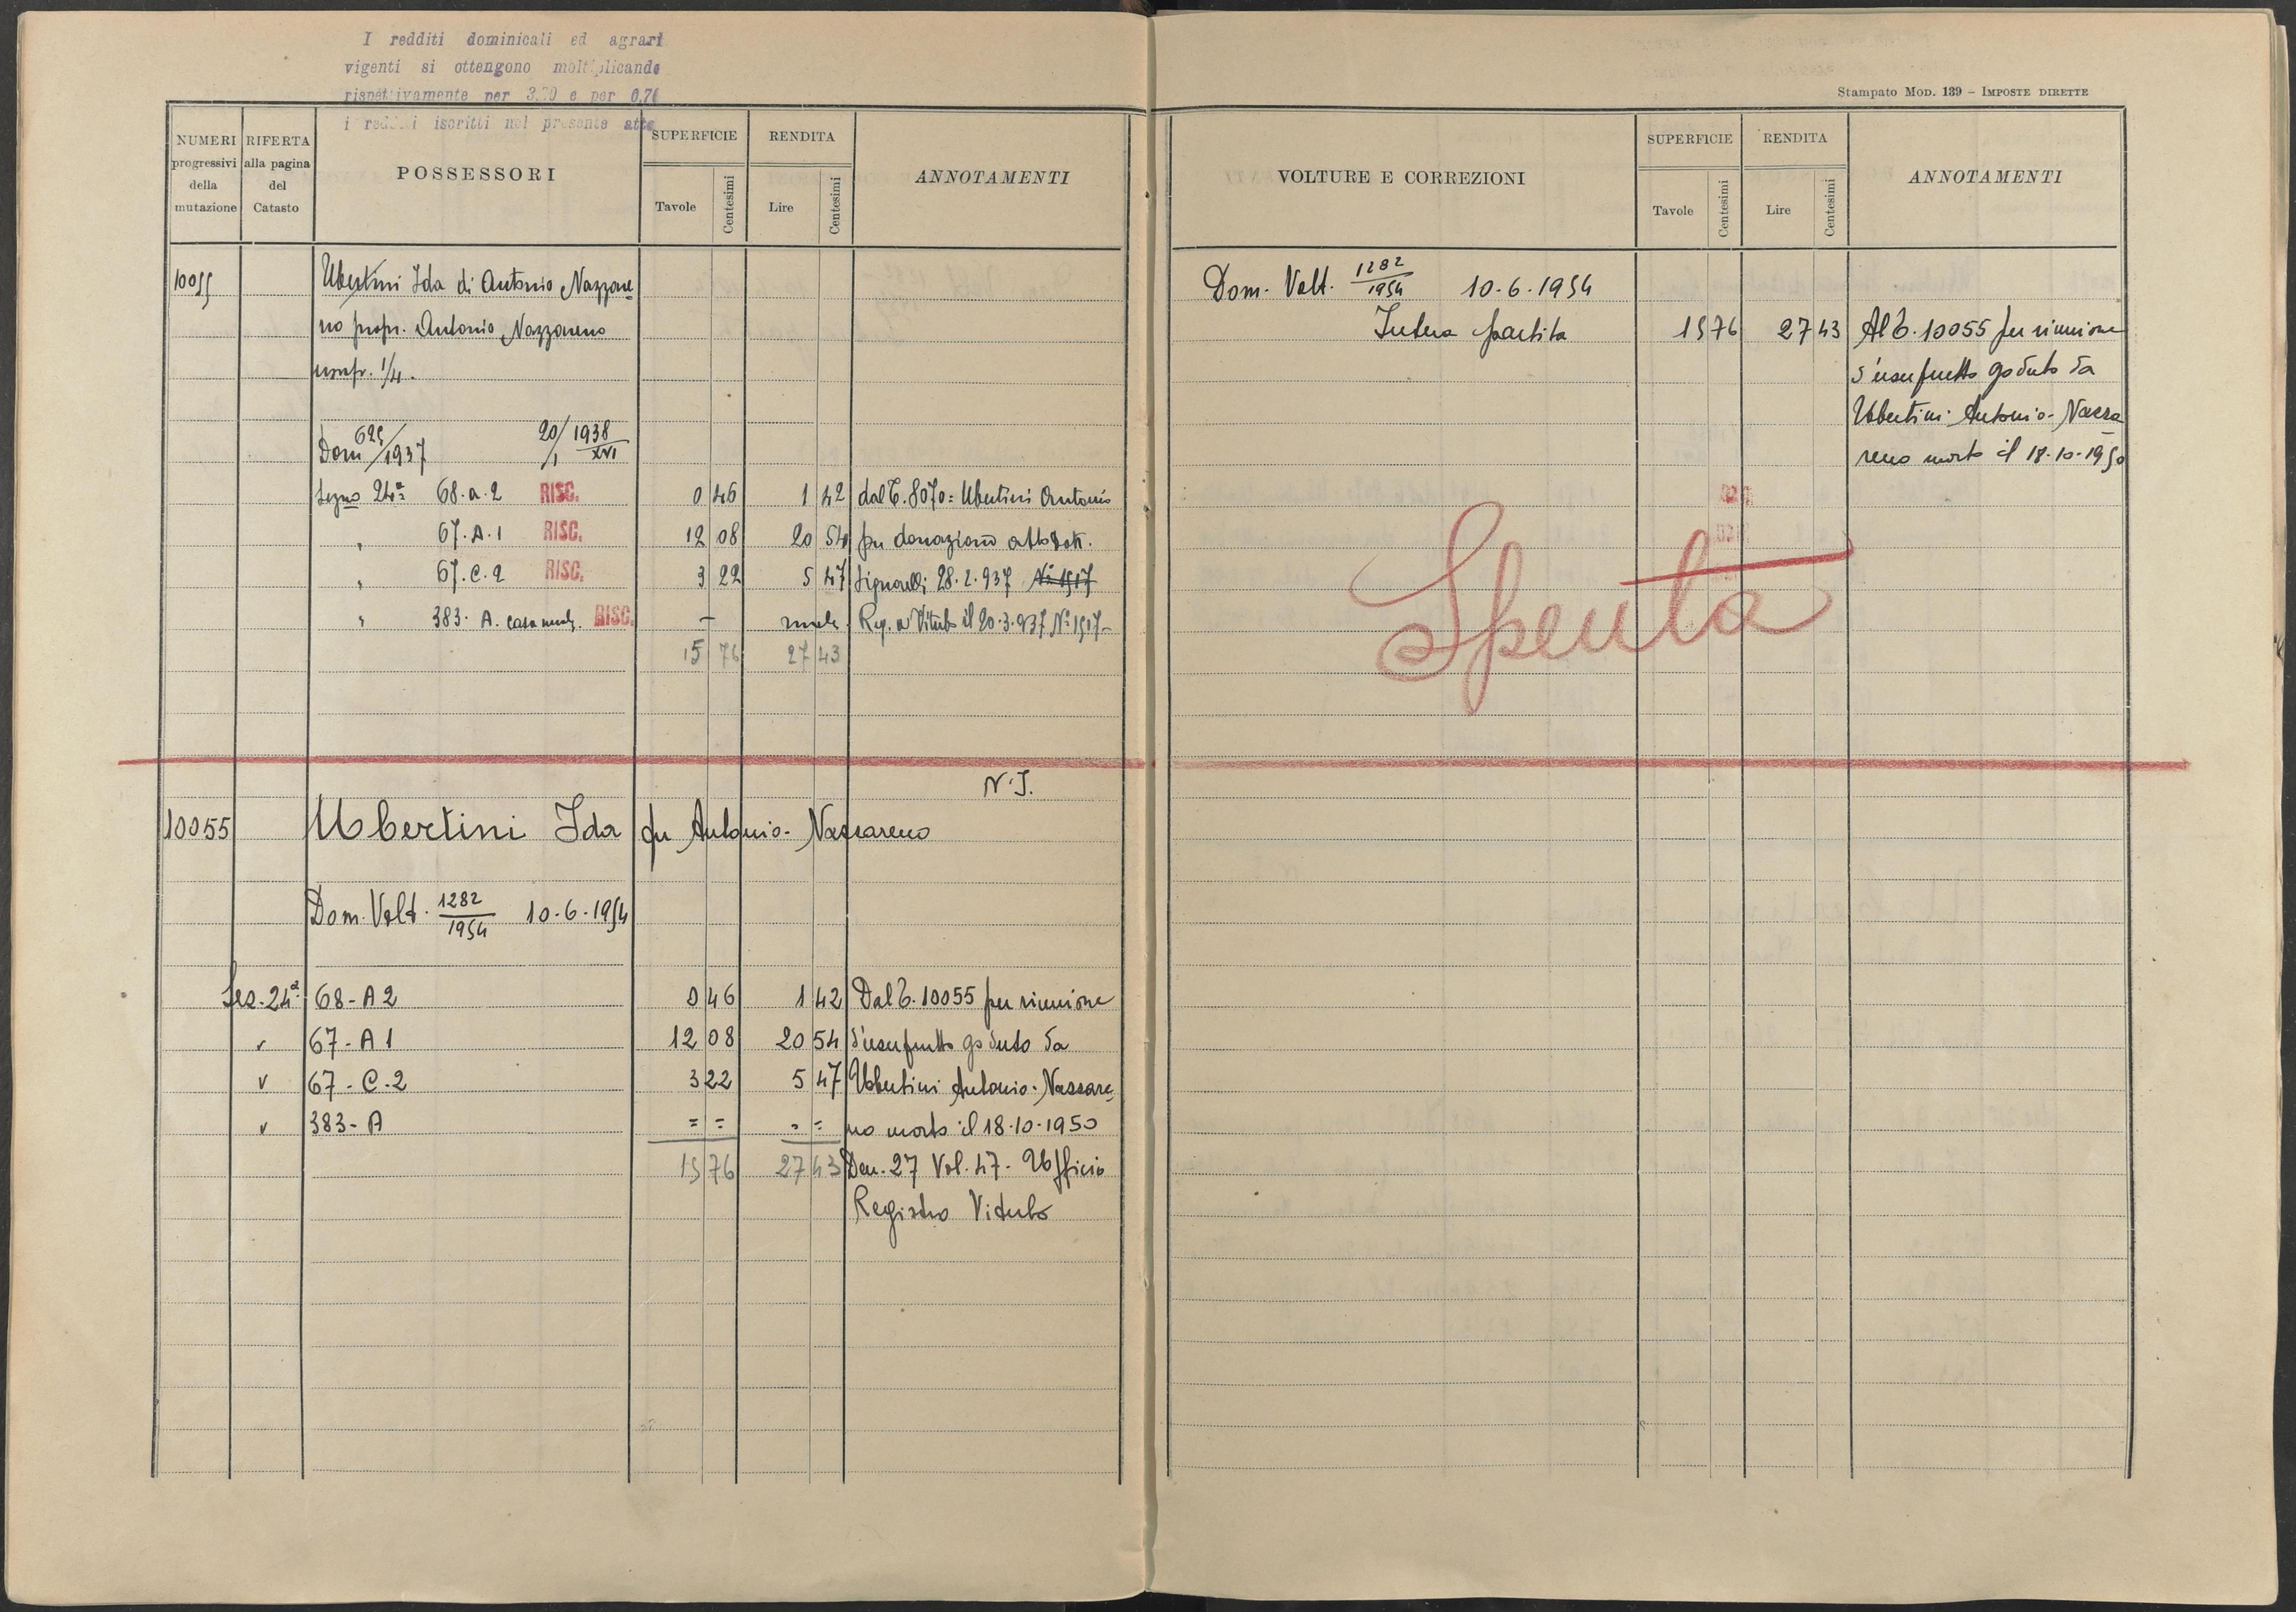 I redditi dominicali ed agrari
vigenti si ottengono moltiplicando
rispettivamente per 3,70 e per 0,70
i redditi iscritti nel presente atto
NUMERI progressivi della mutazione
RIFERTA alla pagina del Catasto
POSSESSORI
SUPERFICIE
Tavole Centesimi
RENDITA
Lire Centesimi
ANNOTAMENTI
10055 Ubertini Ida di Antonio Nazzare
no propr. Antonio Nazzareno
usufr. 1/4.
Dom 625/1937 20/1 1938 XVI
Segno 24ª 68.a.2 RISC. 0 46 1 42 dal T. 8070 = Ubertini Antonio
" 67.A.1 RISC. 12 08 20 54 per donazione atto Dott.
" 67.C.2 RISC. 3 22 5 47 Signorelli 28.2.937 Nº 1517
" 383. A. casa RISC. – Reg. a Viterbo il 20.3.937 Nº 1517-
15 76 27 43
N.I.
10055 Ubertini Ida fu Antonio-Nazzareno
Dom. Volt. 1282/1954 10.6.1954
Sez. 24ª 68-A2 0 46 1 42 Dal T. 10055 per riunione
" 67-A1 12 08 20 54 d'usufrutto goduto da
" 67-C.2 3 22 5 47 Ubertini Antonio-Nazzare
" 383-A = = = = no morto il 18.10.1950
15 76 27 43 Den. 27 Vol. 47- Ufficio
Registro Viterbo
Stampato MOD. 139 – IMPOSTE DIRETTE
VOLTURE E CORREZIONI
SUPERFICIE
Tavole Centesimi
RENDITA
Lire Centesimi
ANNOTAMENTI
Dom. Volt. 1282/1954 10.6.1954
Intera partita 15 76 27 43 Al T. 10055 per riunione
d'usufrutto goduto da
Ubertini Antonio-Nazza
reno morto il 18.10.1950
Spenta